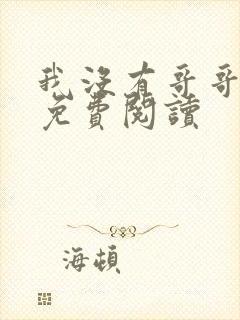 我沒有哥哥
免費閱讀
海頓